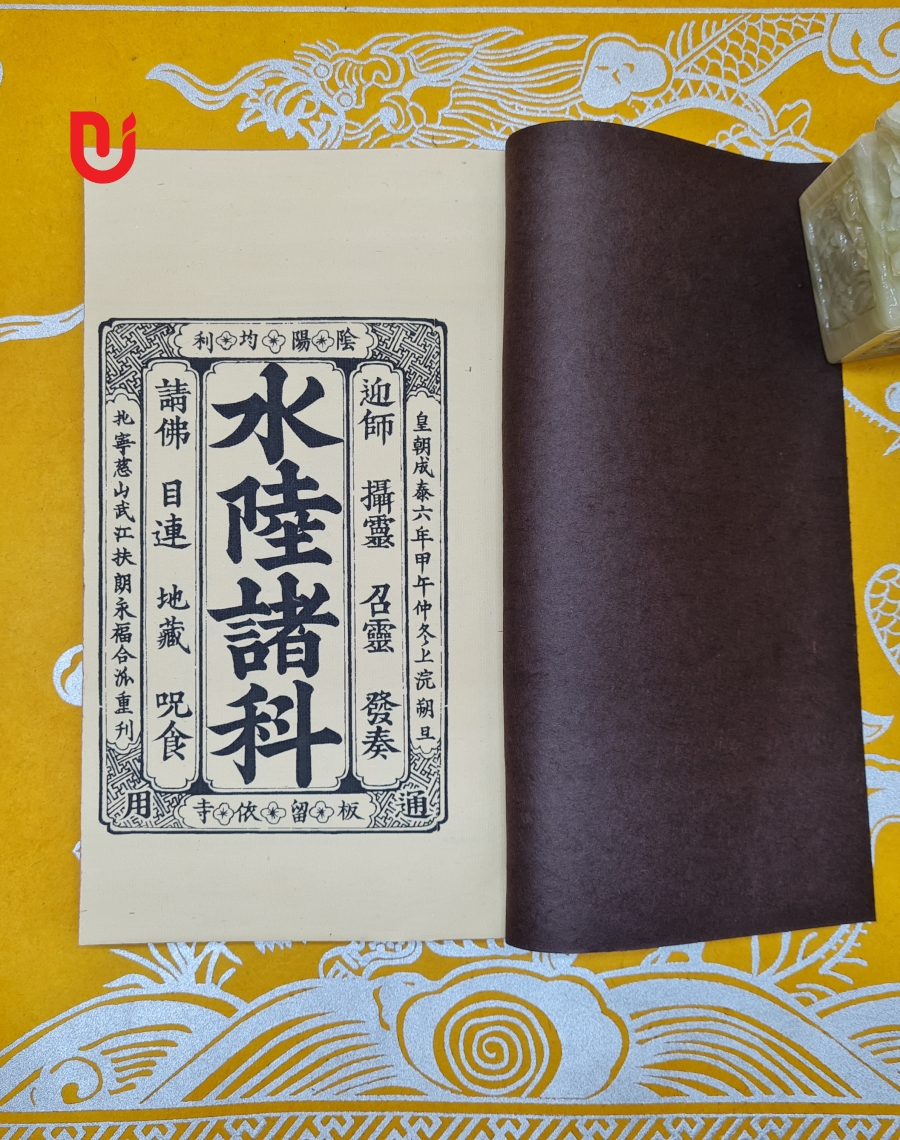 陰陽均利
皇朝成泰六年甲午仲冬上浣朔旦
迎師 攝靈 召靈 發奏
水陸諸科
請佛 目連 地藏 呪食
北寧慈山武江扶朗永福合派重刊
通用
板留依寺